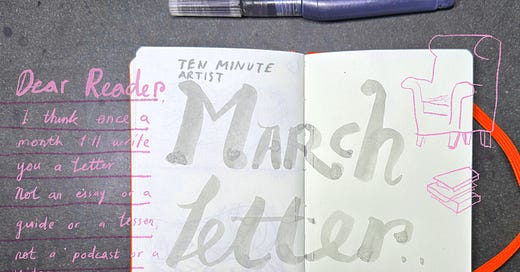 TEN MINUTE
ARTIST
March
letter..
Dear Reader,
I think once a
month I'll write
you a letter
Not an essay or a
guide or a lesson,
not a podcast or a